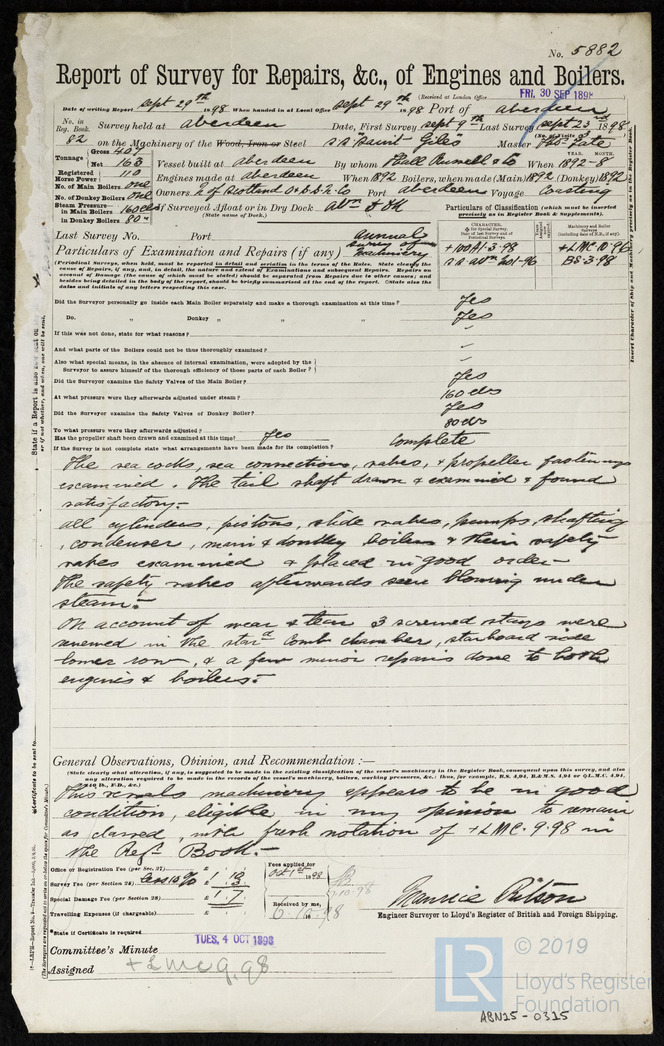 No. 5882
Report of Survey for Repairs, &c., of Engines and Boilers.
(Received at London Office FRI. 30 SEP 1898 )
Date of writing Report Sept 29th 1898 When handed in at Local Office Sept 29th 1898 Port of Aberdeen
No. in Reg. Book. Survey held at Aberdeen Date, First Survey Sept 9th Last Survey Sept 23rd 1898
82 on the Machinery of the Wood, Iron or Steel S.S. "Saint Giles" Master Thos. Tate
Tonnage Gross 407
Net 163 Vessel built at Aberdeen By whom Hall Russell & Co When 1892-8
Registered Horse Power 110 Engines made at Aberdeen When 1892 Boilers, when made (Main) 1892 (Donkey) 1892
No. of Main Boilers one
No. of Donkey Boilers one Owners Port Aberdeen Voyage Coasting
Steam Pressure—
in Main Boilers 160 lbs If Surveyed Afloat or in Dry Dock
in Donkey Boilers 80 (State name of Dock.)
Particulars of Classification (which must be inserted precisely as in Register Book & Supplements).
Last Survey No. Port Annual Survey of Machinery
Particulars of Examination and Repairs (if any)
+100A1-3-98 +LMC 10.96
BS-3-98
(Periodical Surveys, when held, must be reported in detail and seriatim in the terms of the Rules. State clearly the
cause of Repairs, if any, and, in detail, the nature and extent of Examinations and subsequent Repairs. Repairs on
account of Damage (the cause of which must be stated) should be separated from Repairs due to other causes; and
besides being detailed in the body of the report, should be briefly summarised at the end of the report. State also the
dates and initials of any letters respecting this case.
Did the Surveyor personally go inside each Main Boiler separately and make a thorough examination at this time? Yes
Do. " Donkey " " " Yes
If this was not done, state for what reasons? -
And what parts of the Boilers could not be thoroughly examined? -
Also what special means, in the absence of internal examination, were adopted by the
Surveyor to assure himself of the thorough efficiency of those parts of each Boiler? -
Did the Surveyor examine the Safety Valves of the Main Boiler? Yes
At what pressure were they afterwards adjusted under steam? 160 lbs
Did the Surveyor examine the Safety Valves of Donkey Boiler? Yes
To what pressure were they adjusted? 80 lbs
Has the propeller shaft been drawn and examined at this time? Yes
If the Survey is not complete state what arrangements have been made for its completion? Complete
The sea cocks, sea connections, valves, & propeller fastenings
examined. The tail shaft drawn & examined & found
satisfactory.-
All cylinders, pistons, slide valves, pumps, shafting
, condenser, main & donkey boilers & their safety
valves examined & placed in good order.
The safety valves afterwards seen blowing under
steam.-
On account of wear & tear 3 screwed stays were
renewed in the starbd comb chamber, starboard side
lower row, & a few minor repairs done to both
engines & boilers.-
General Observations, Opinion, and Recommendation :—
(State clearly what alteration, if any, is suggested to be made in the existing classification of the vessel's machinery in the Register Book, consequent upon this survey, and also
any alteration required to be made in the records of the vessel's machinery, boilers, working pressures, &c.: thus, for example, B.S. 4,94, B.&M.S. 4,94 or L.M.C. 4,94,
140 lb., F.D., &c.)
This vessels machinery appears to be in good
condition, eligible in my opinion to remain
as classed, with fresh notation of +LMC. 9.98 in
the Regr Book.-
Office or Registration Fee (per Sec. 27) £
Survey Fee (per Section 28) £ 1
Special Damage Fee (per Section 28) £ 1 7
Travelling Expenses (if chargeable) £
Fees applied for
Oct 1st 1898
Received by me,
Maurice Pitson
Engineer Surveyor to Lloyd's Register of British and Foreign Shipping.
*State if Certificate is required
Committee's Minute TUES. 4 OCT 1898
Assigned + LMC 9.98
© 2019
Lloyd's Register
Foundation
LR
ABN25-0315